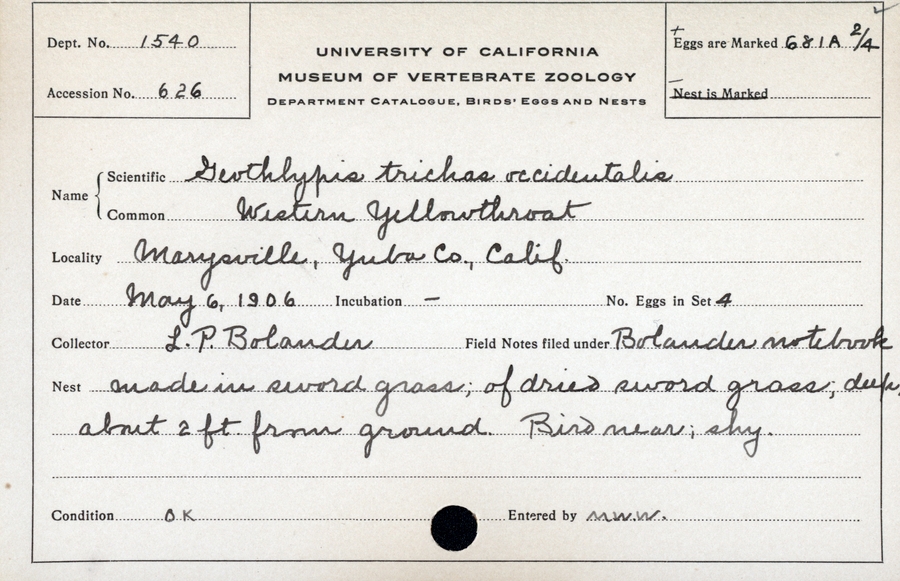 Dept. No. 1540
Accession No. 626
UNIVERSITY OF CALIFORNIA
MUSEUM OF VERTEBRATE ZOOLOGY
DEPARTMENT CATALOGUE, BIRDS' EGGS AND NESTS
+
Eggs are Marked 681A 2/4
—
Nest is Marked
Name Scientific Geothlypis trichas occidentalis
Common Western Yellowthroat
Locality Marysville, Yuba Co., Calif.
Date May 6, 1906 Incubation — No. Eggs in Set 4
Collector L. P. Bolander Field Notes filed under Bolander notebook
Nest made in sword grass; of dried sword grass; deep,
about 2 ft from ground. Bird near; shy.
Condition OK Entered by M.W.W.